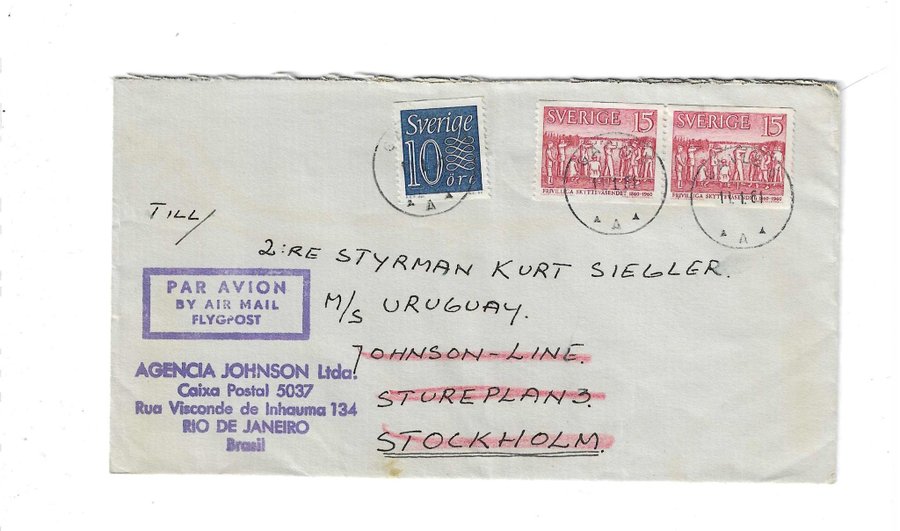 Sverige
10
öre
SVERIGE 15
FRIVILLIGA SKYTTEVÄSENDET 1860-1960
SVERIGE 15
FRIVILLIGA SKYTTEVÄSENDET 1860-1960
A
A
A
TILL/
2:RE STYRMAN KURT SIEGLER.
M/S URUGUAY.
JOHNSON-LINE.
STUREPLAN 3.
STOCKHOLM.
PAR AVION
BY AIR MAIL
FLYGPOST
AGENCIA JOHNSON Ltda.
Caixa Postal 5037
Rua Visconde de Inhauma 134
RIO DE JANEIRO
Brasil